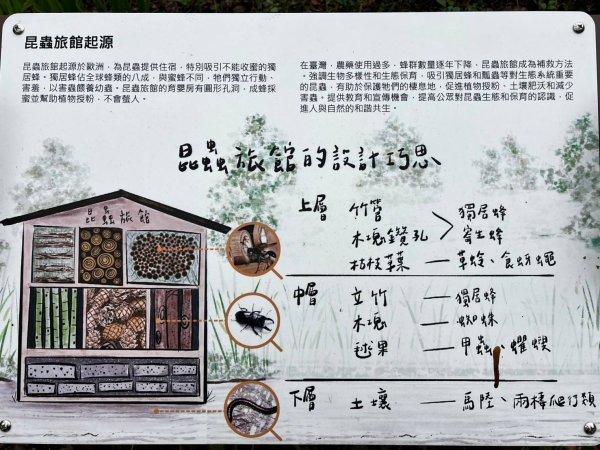 昆蟲旅館起源
昆蟲旅館起源於歐洲，為昆蟲提供住宿，特別吸引不能收蜜的獨
居蜂。獨居蜂佔全球蜂類的八成，與蜜蜂不同，牠們獨立行動、
害羞，以害蟲餵養幼蟲。昆蟲旅館的育嬰房有圓形孔洞，成蜂採
蜜並幫助植物授粉，不會螫人。
在臺灣，農藥使用過多，蜂群數量逐年下降，昆蟲旅館成為補救方法
。強調生物多樣性和生態保育，吸引獨居蜂和瓢蟲等對生態系統重要
的昆蟲，有助於保護牠們的棲息地，促進植物授粉、土壤肥沃和減少
害蟲。提供教育和宣傳機會，提高公眾對昆蟲生態和保育的認識，促
進人與自然的和諧共生。
昆蟲旅館的設計巧思
昆蟲旅館
上層 竹管 獨居蜂
木塊鑽孔 寄生蜂
枯枝草葉 — 草蛉、食蚜蠅
中層 立竹 — 獨居蜂
木塊 — 蜘蛛
毬果 — 甲蟲、蠼螋
下層 土壤 — 馬陸、兩棲爬行類